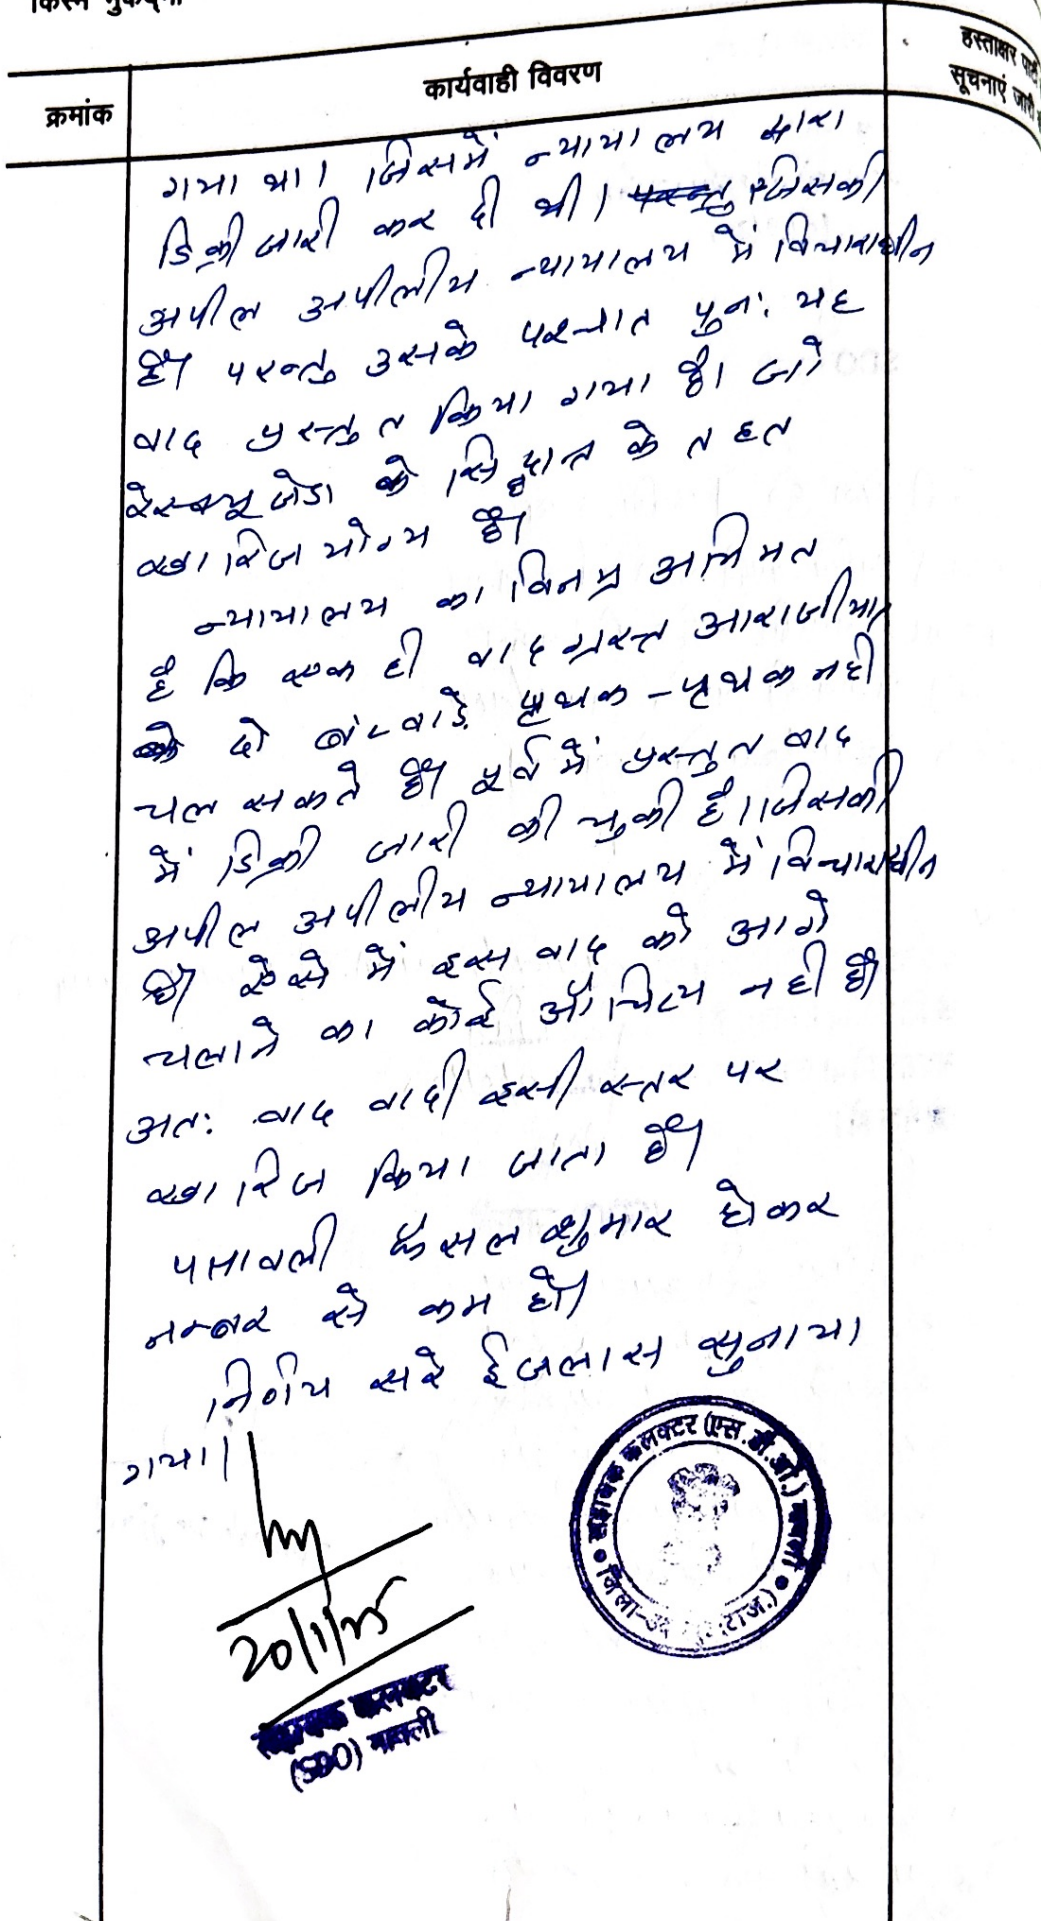 किस्म मुकद्मा
क्रमांक
कार्यवाही विवरण
हस्ताक्षर
सूचनाएं जारी
गया था। जिसमें न्यायालय द्वारा
डिक्री जारी कर दी थी। परन्तु जिसकी
अपील अपीलीय न्यायालय में विचाराधीन
है। परन्तु उसके पश्चात पुनः यह
वाद प्रस्तुत किया गया है। जो
रेस्ज्यूजेडा के सिद्धान्त के तहत
खारिज योग्य है।
न्यायालय का विनम्र अभिमत
है कि एक ही वाद ग्रस्त आराजीयात
के दो बंटवाडे पृथक - पृथक नही
चल सकते है। पूर्व में प्रस्तुत वाद
में डिक्री जारी की चुकी है। जिसकी
अपील अपीलीय न्यायालय में विचाराधीन
है। ऐसे में इस वाद को आगे
चलाने का कोई औचित्य नही है।
अतः वाद वादी इसी स्तर पर
खारिज किया जाता है।
पत्रावली फैसल शुमार होकर
नम्बर से कम हो।
निर्णय सरे ईजलास सुनाया
गया।
20/1/25
सहायक कलक्टर
(SDO) मावली
सहायक कलक्टर (एस.डी.ओ.) मावली
जिला- (राज.)